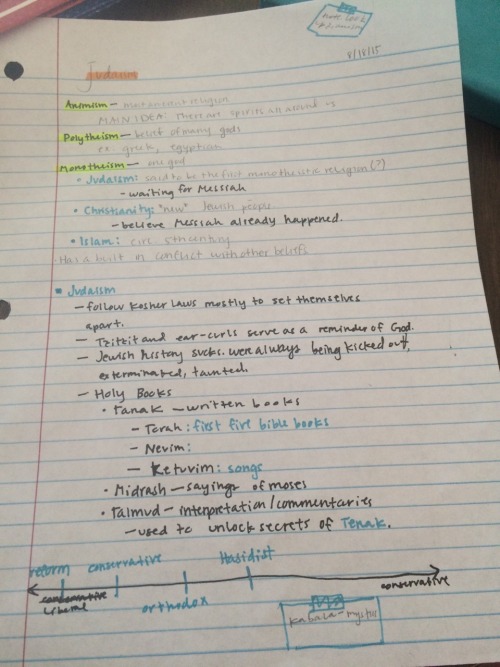 8/18/15
Judaism
Animism – most ancient religion
MAIN IDEA: There are spirits all around us
Polytheism – belief of many gods
ex. greek, egyptian
Monotheism – one god
• Judaism: said to be the first monotheistic religion (?)
- waiting for Messiah
• Christianity: "new" Jewish people
- believe Messiah already happened.
• Islam: circ. 5th century
- Has a built in conflict with other beliefs
Judaism
- follow kosher laws mostly to set themselves
apart.
- Tzitzit and ear-curls serve as a reminder of God.
- Jewish history sucks. were always being kicked out,
exterminated, taunted.
- Holy Books
• Tanak – written books
- Torah: first five bible books
- Nevim:
- Ketuvim: songs
• Midrash – sayings of moses
• Talmud – interpretation/commentaries
- used to unlock secrets of Tenak.
reform conservative Hasidist
liberal orthodox conservative
Kabala -